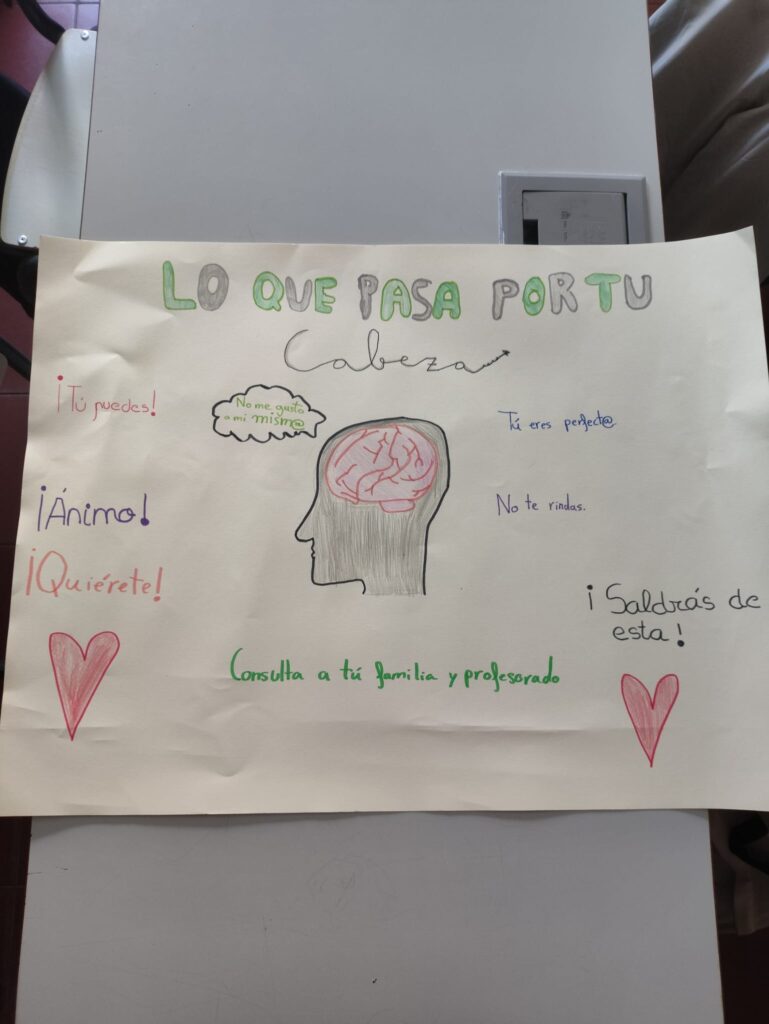 LO QUE PASA POR TU
Cabeza
¡Tú puedes!
No me gusto
a mi mism@
Tú eres perfect@.
¡Ánimo!
No te rindas.
¡Quiérete!
¡Saldrás de
esta!
Consulta a tú familia y profesorado